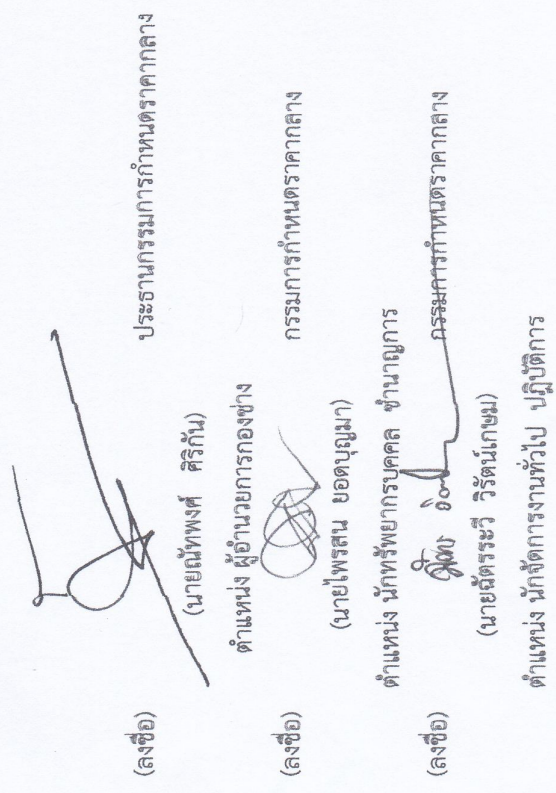 (ลงชื่อ) ประธานกรรมการกำหนดราคากลาง
(นายณัทพงศ์ ศิริกัน)
ตำแหน่ง ผู้อำนวยการกองช่าง
(ลงชื่อ) กรรมการกำหนดราคากลาง
(นายไพรสน ยอดบุญมา)
ตำแหน่ง นักทรัพยากรบุคคล ชำนาญการ
(ลงชื่อ) กรรมการกำหนดราคากลาง
(นายฉัตรระวี วิรัตน์เกษม)
ตำแหน่ง นักจัดการงานทั่วไป ปฏิบัติการ